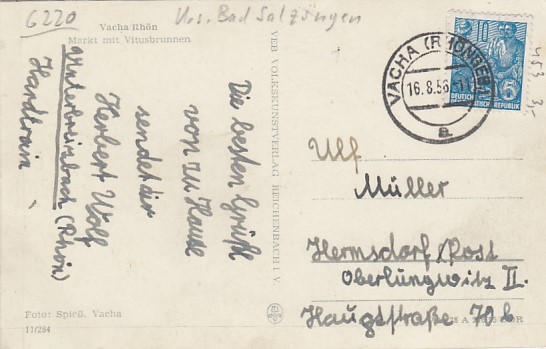 6220
Krs. Bad Salzungen
Vacha/Rhön
Markt mit Vitusbrunnen
Die besten Grüße
von zu Hause
sendet dir
Herbert Wolf
Unterbreizbach (Rhön)
Foto: Spieß, Vacha
11/284
VEB VOLKSKUNSTVERLAG REICHENBACH I. V.
VACHA (RHÖNGEB)
16.8.56
a
DEUTSCHE DEMOKRATISCHE REPUBLIK
5
Ulf
Müller
Hermsdorf/Post
Oberlungwitz II.
Hauptstraße 70 b